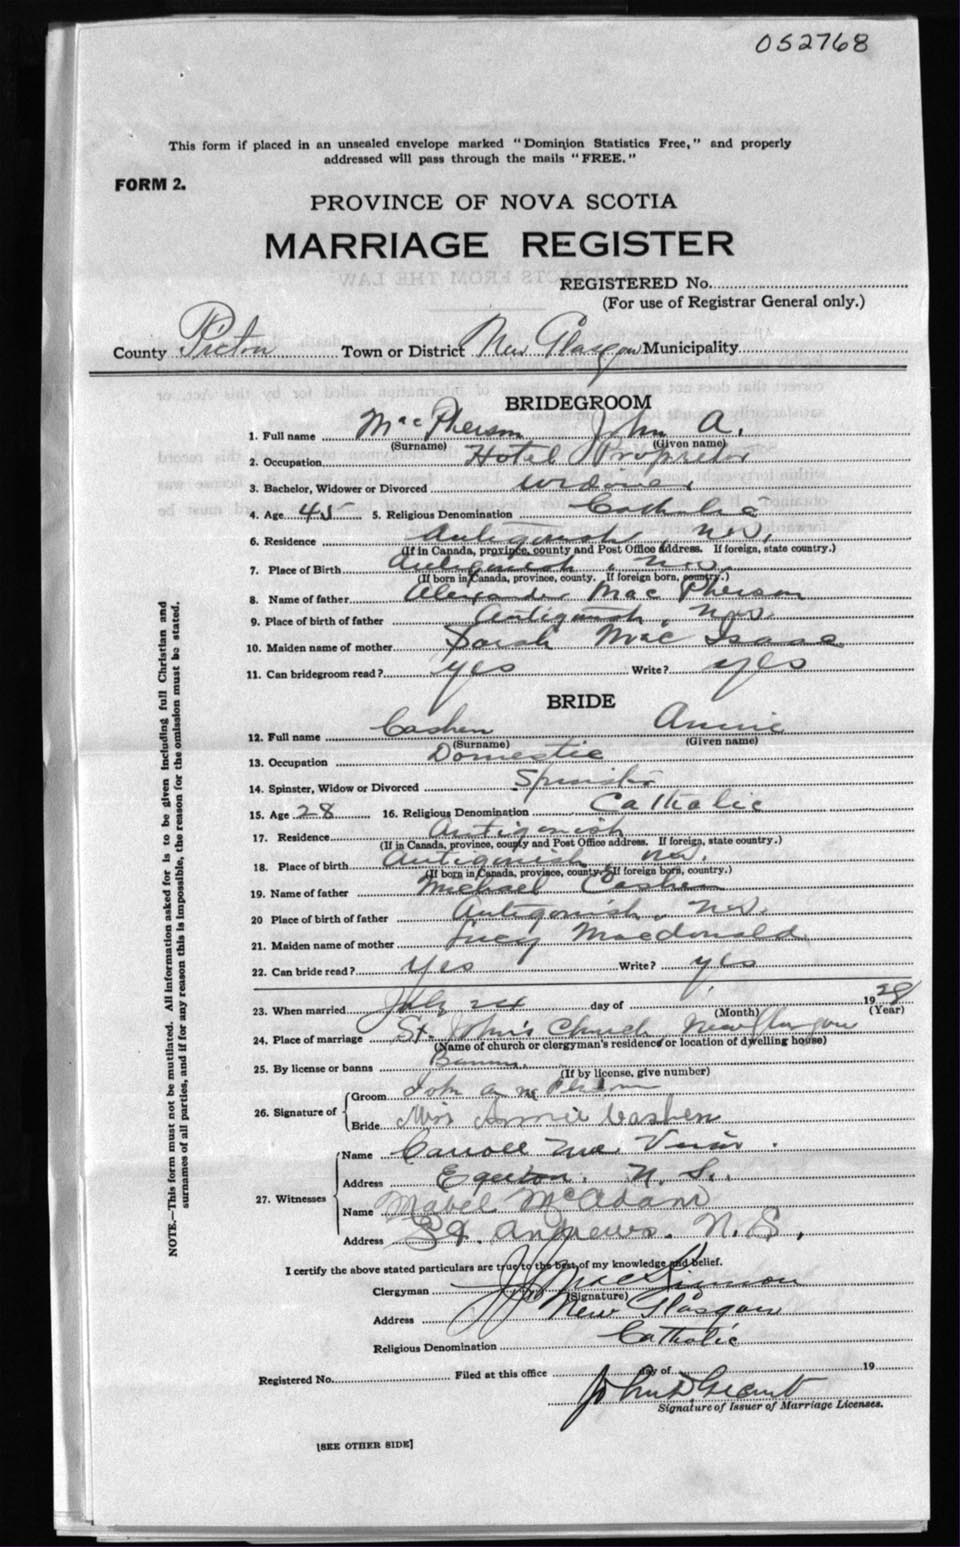 052768
This form if placed in an unsealed envelope marked "Dominion Statistics Free," and properly
addressed will pass through the mails "FREE."
FORM 2.
PROVINCE OF NOVA SCOTIA
MARRIAGE REGISTER
REGISTERED No.
(For use of Registrar General only.)
County Pictou Town or District New Glasgow Municipality
BRIDEGROOM
1. Full name MacPherson John A.
(Surname) (Given name)
2. Occupation Hotel Proprietor
3. Bachelor, Widower or Divorced Widower
4. Age 45 5. Religious Denomination Catholic
6. Residence Antigonish, N.S.
(If in Canada, province, county and Post Office address. If foreign, state country.)
7. Place of Birth Antigonish, N.S.
(If born in Canada, province, county. If foreign born, country.)
8. Name of father Alexander Mac Pherson
9. Place of birth of father Antigonish, N.S.
10. Maiden name of mother Sarah Mac Isaac
11. Can bridegroom read? yes Write? yes
BRIDE
12. Full name Cashen Annie
(Surname) (Given name)
13. Occupation Domestic
14. Spinster, Widow or Divorced Spinster
15. Age 28 16. Religious Denomination Catholic
17. Residence Antigonish
(If in Canada, province, county and Post Office address. If foreign, state country.)
18. Place of birth Antigonish, N.S.
(If born in Canada, province, county. If foreign born, country.)
19. Name of father Michael Cashen
20 Place of birth of father Antigonish, N.S.
21. Maiden name of mother Lucy Macdonald
22. Can bride read? Yes Write? yes
23. When married July 24 day of 1928
(Month) (Year)
24. Place of marriage St. John's Church New Glasgow
(Name of church or clergyman's residence or location of dwelling house)
25. By license or banns Banns.
(If by license, give number)
26. Signature of Groom John A McPherson
Bride Mrs Annie Cashen
27. Witnesses Name Carroll Mc
Address Egerton, N.S.
Name Mabel McAdam
Address St. Andrews. N.S.
I certify the above stated particulars are true to the best of my knowledge and belief.
Clergyman MacKinnon
(Signature)
Address New Glasgow
Religious Denomination Catholic
Registered No. Filed at this office day of 19
John D Grant
Signature of Issuer of Marriage Licenses.
[SEE OTHER SIDE]
NOTE.—This form must not be mutilated. All information asked for is to be given including full Christian and
surnames of all parties, and if for any reason this is impossible, the reason for the omission must be stated.